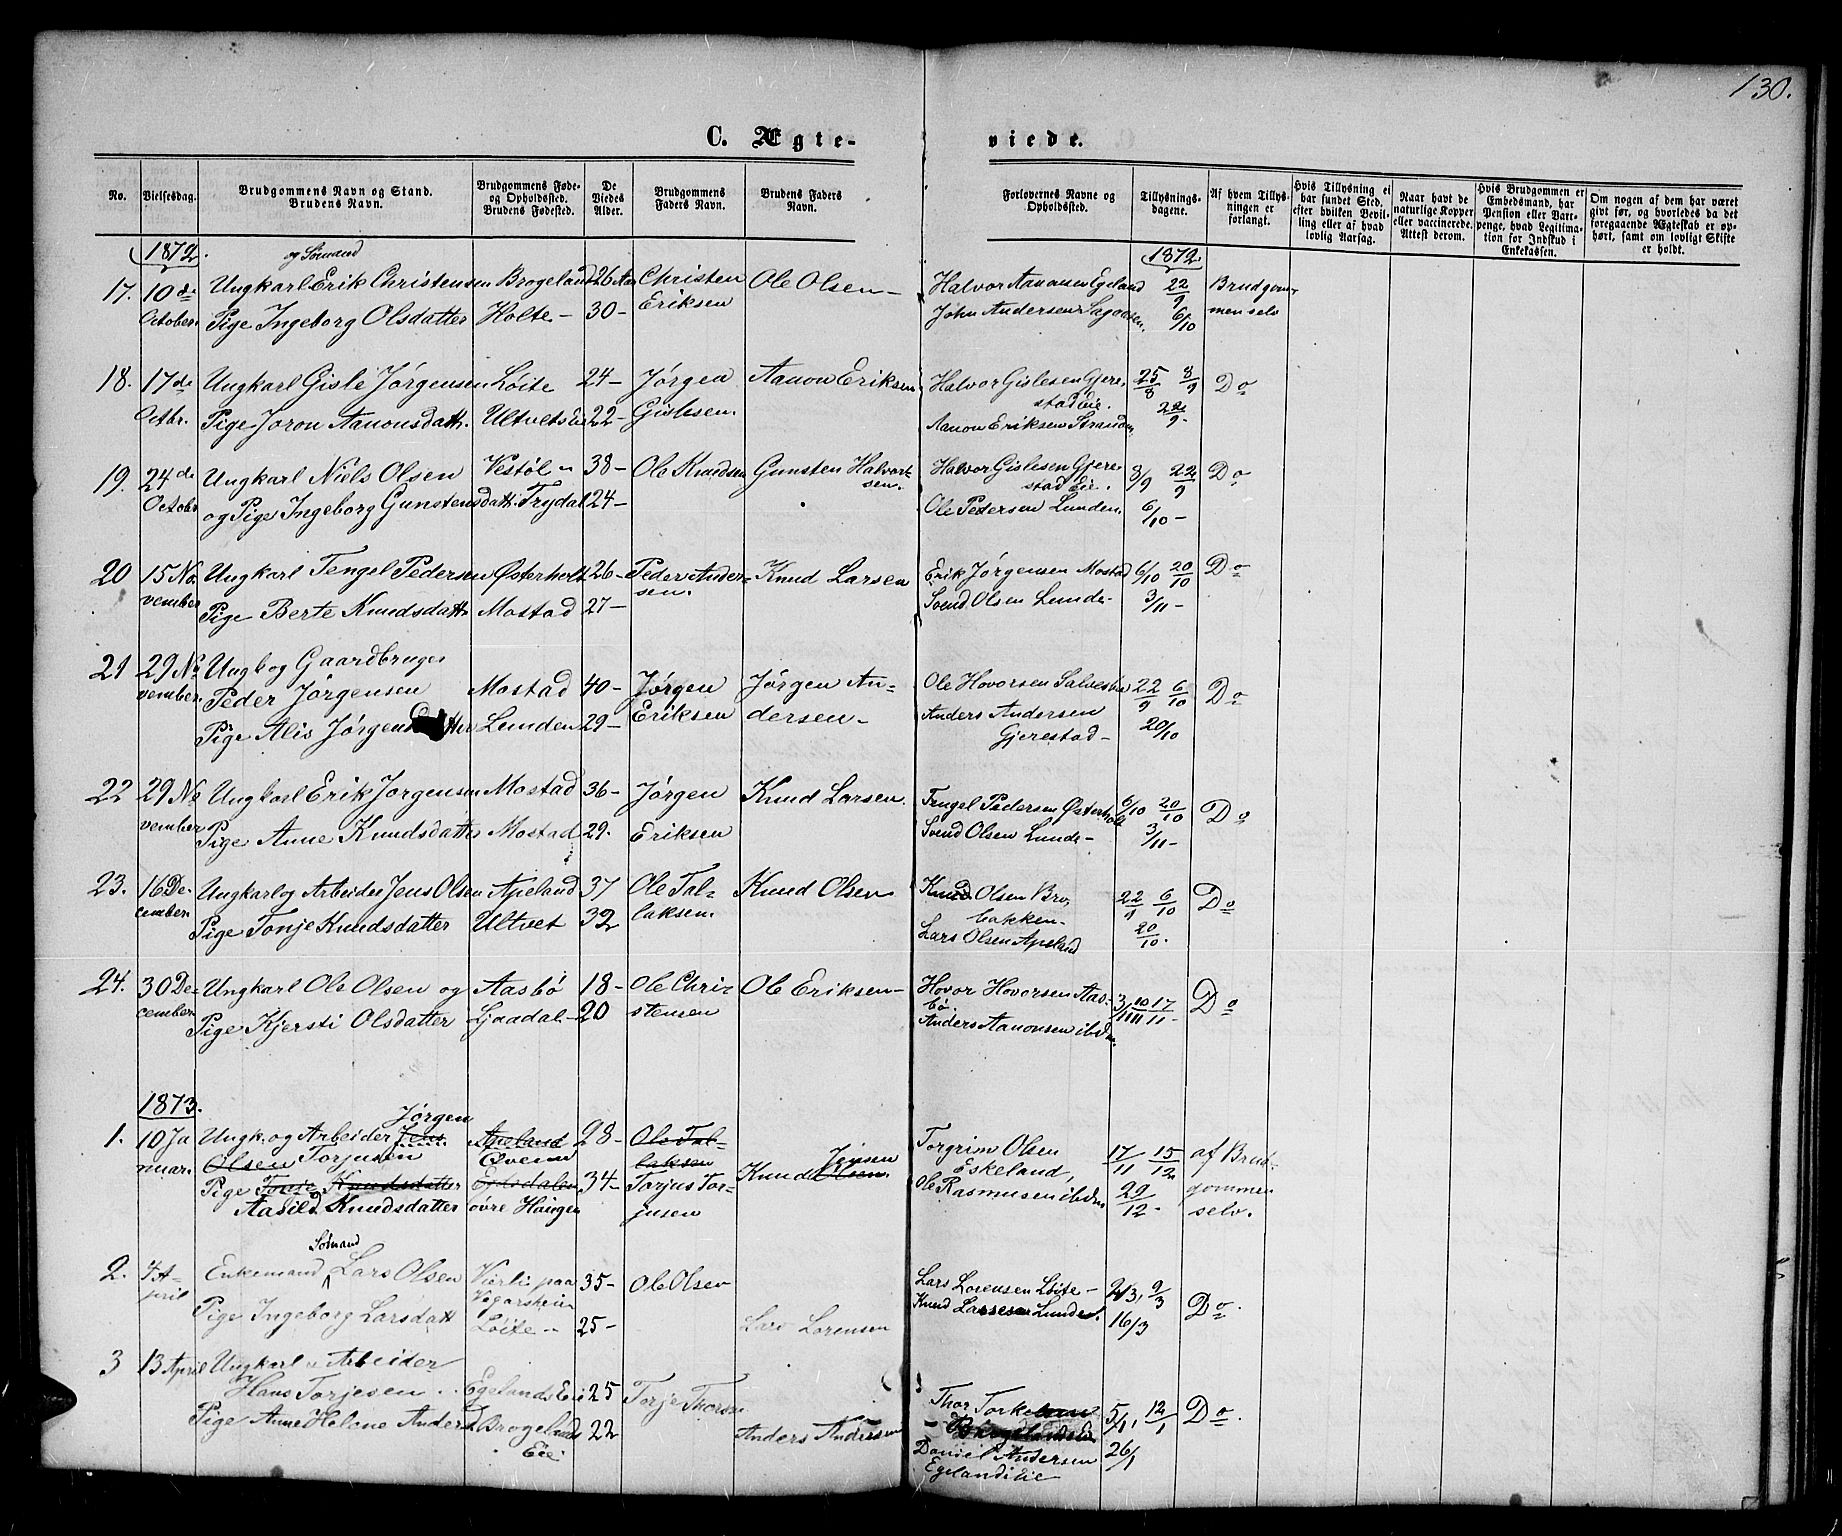 130.
C. Ægte-
viede.
No.
Vielsesdag.
Brudgommens Navn og Stand.
Brudens Navn.
Brudgommens Føde-
og Opholdssted.
Brudens Fødested.
De
Viedes
Alder.
Brudgommens
Faders Navn.
Brudens Faders
Navn.
Forlovernes Navne og
Opholdssted.
Tillysnings-
dagene.
Af hvem Tillys-
ningen er
forlangt.
Hvis Tillysning ei
har fundet Sted,
efter hvilken Bevil-
ling eller af hvad
lovlig Aarsag.
Naar havt de
naturlige Kopper
eller vaccinerede.
Attest derom.
Hvis Brudgommen er
Embedsmand, har
Pension eller Vart-
penge, hvad Legitima-
tion for Indskud i
Enkekassen.
Om nogen af dem har været
gift før, og hvorledes da det
foregaaende Ægteskab er op-
hørt, samt om lovligt Skifte
er holdt.
1872. og Sömand 1872.
17. 10de Ungkarl Erik Christensen Brogeland 26 Aar Christen Ole Olsen- Halvor Aanonsen Egeland 22/9 Brudgom-
October Pige Ingeborg Olsdatter Holte- 30- Eriksen John Andersen Sagaasen. 6/10 men selv
18. 17de Ungkarl Gisle Jørgensen Löite 24- Jørgen Aanon Eriksen Halvor Gislesen Gjere- 25/8 8/9 Do
stadeie. 22/9-
Octbr. Pige Joron Aanonsdatt. Ultvets Eie 22- Gislesen. Aanon Eriksen
19. 24de Ungkarl Niels Olsen Vestöl- 38- Ole Knudsen Gunsten Halvor- Halvor Gislesen Gjere- 8/9 22/9 Do
sen. stad Eie.
October og Pige Ingeborg Gunstensdatt. Trydal 24- Ole Pedersen Lunden. 6/10-
20 15 No- Ungkarl Tengel Pedersen Østerholt 26- Peder Ander- Knud Larsen Erik Jørgensen Mostad 6/10 20/10 Do
vember Pige Berte Knudsdatt. Mostad 27- sen. Svend Olsen Lunde- 3/11-
21 29 No- Ungk og Gaardbruger
vember. Peder Jørgensen Mostad 40- Jørgen Jørgen An- Ole Hovorsen 22/9 6/10 Do
Pige Alis Lunden 29- Eriksen dersen- Anders Andersen
Gjerestad- 20/10
22 29 No- Ungkarl Erik Jørgensen Mostad 36- Jørgen Knud Larsen. Tengel Pedersen Østerholt 6/10 20/10 Do
vember Pige Anne Knudsdatter Mostad 29. Eriksen Svend Olsen Lunde- 3/11-
23. 16 De- Ungkarl og Arbeider Jens Olsen Apeland 37 Ole Tal- Knud Olsen Knud Olsen Bro- 22/9 6/10 Do
cember. Pige Tonje Knudsdatter Ultvet 32 laksen. bakken-
Lars Olsen Apeland 20/10.
24. 30 De- Ungkarl Ole Olsen og Aasbö 18- Ole Chri- Ole Eriksen- Hovor Hovorsen Aas- 3/11 10/11 17/11- Do
cember Pige Kjersti Olsdatter Ljaadal- 20 stensen bö.
Anders Aanonsen ibdm.
1873.
Jørgen
1. 10 Ja- Ungk. og Arbeider Jens Apeland 28- Ole Tal- Torgrim Olsen 17/11 15/12 af Brud-
nuar. Olsen Torjusen laksen Jensen Eskeland,
Pige Tonje Knudsdatter 34- Torjus Tor- Knud Olsen. Ole Rasmusen ibdm 29/12- gommen
Aasild Knudsdatter övre Haugen jusen selv.
2. 4 A- Enkemand Sömand Lars Olsen Vierli paa 35- Ole Olsen Lars Lorensen Löite- 2/3, 9/3
pril Pige Ingeborg Larsdatt Vegarsheien Knud Lunde. 16/3 Do.
Löite- 25- Lars Lorensen
3 13 April Ungkarl Arbeider
Hans Torjesen Egelands Eie 25 Torje Thorsen Thor 5/1, 12/1 Do.
Pige Anne Helene Anders Brogelands 22 Anders Andersen
Eie Daniel Andersen 26/1
Egelandseie